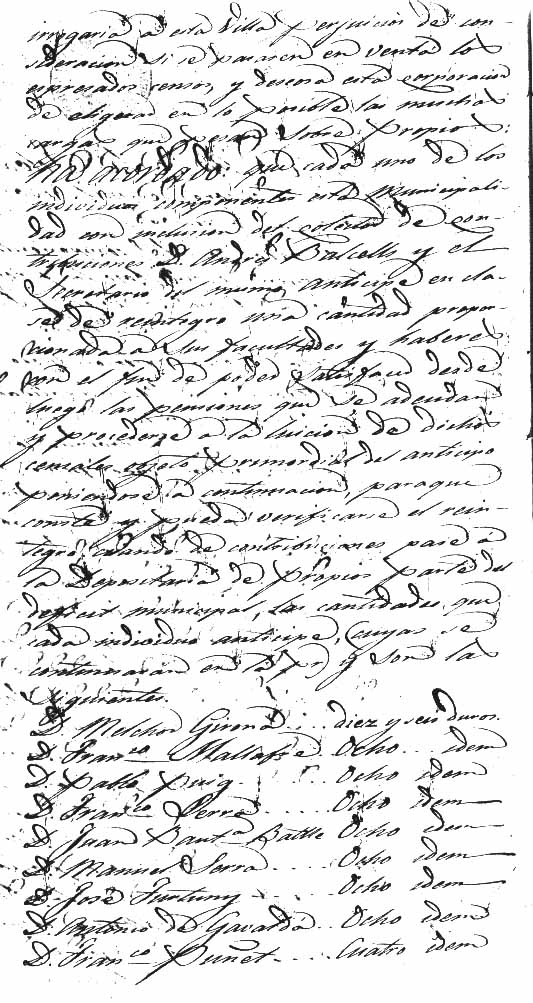 irrogaria á esta Villa perjuicios de con-
sideracion si se pasasen en venta los
espresados censos, y deseosa esta corporacion
de aligerar en lo posible las muchas
cargas que pesan sobre Propios:
Ha acordado: que cada uno de los
individuos componentes esta Municipali-
dad con inclusion del colector de con-
tribuciones D. Andrés Balcells y el
Secretario del mismo, anticipe en cla-
se de reintegro una cantidad propor-
cionada a sus facultades y haberes
con el fin de poder satisfacer desde
luego las pensiones que se adeudan
y procederse a la luicion de dichos
censales objeto primordial del anticipo
poniendose á continuacion, paraque
conste y pueda verificarse el rein-
tegro, cuando de contribuciones pase á
la Depositaria de Propios parte del
deficit municipal, las cantidades que
cada individuo anticipe, cuyas se
continuarán en la y son las
siguientes.
D. Melchor Gironá... diez y seis duros.
D. Franco. Mallafré Ocho... idem
D. Pablo Puig... Ocho idem
D. Franco. Serra... Ocho idem
D. Juan Bauta. Batlle Ocho idem
D. Manuel Serra.... Ocho idem
D. José Fortuny... Ocho idem
D. Antonio de Gavaldá.. Ocho idem
D. Franco. Puñet.... Cuatro idem